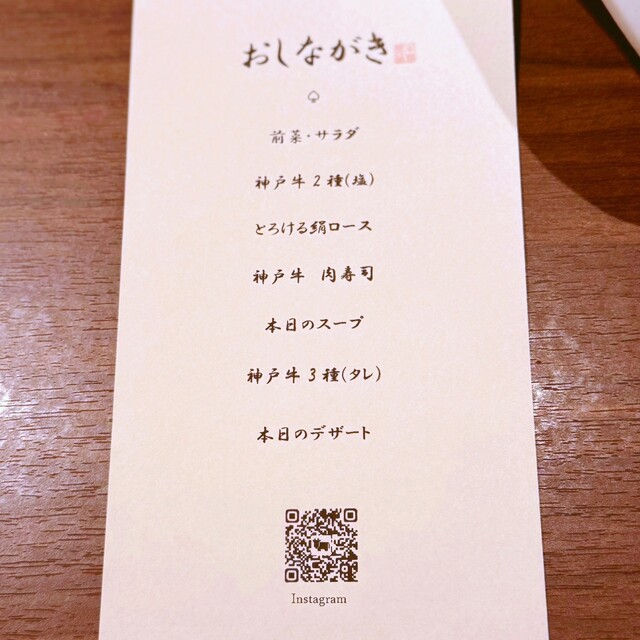 おしながき
前菜・サラダ
神戸牛2種(塩)
とろける絹ロース
神戸牛 肉寿司
本日のスープ
神戸牛3種(タレ)
本日のデザート
Instagram